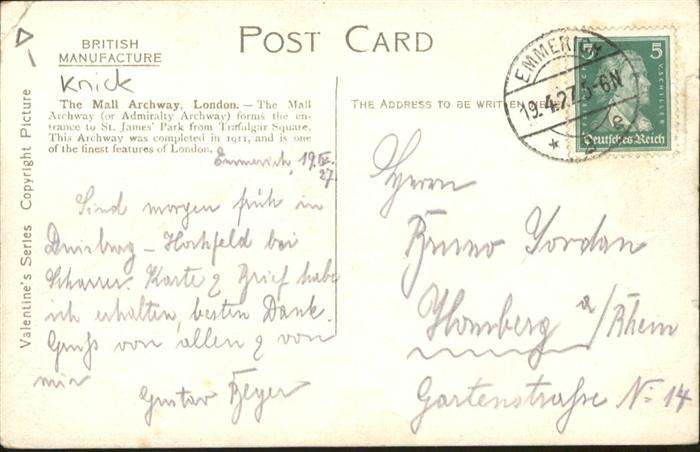 BRITISH
MANUFACTURE
POST CARD
Knick
The Mall Archway, London. — The Mall
Archway (or Admiralty Archway) forms the en-
trance to St. James' Park from Trafalgar Square.
This Archway was completed in 1911, and is one
of the finest features of London.
THE ADDRESS TO BE WRITTEN HERE
EMMERICH
19.4.27.5-6N
5
Deutsches Reich
Valentine's Series Copyright Picture
Emmerich, 19.IV.
27.
Sind morgen früh in
Duisburg – Hochfeld bei
Scharrer. Karte & Brief habe
ich erhalten, besten Dank.
Gruß von allen & von
mir
Gustav Beyer
Herrn
Bruno Jordan
Homberg a/Rhein
Gartenstrasse No 14